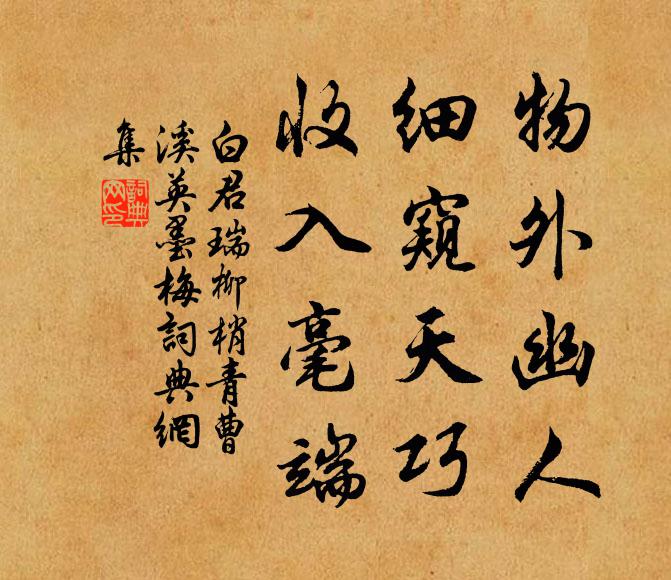 物外幽人
細窺天巧
收入毫端
白君瑞柳梢青曹
溪英墨梅詞典網
集
詞典
网印